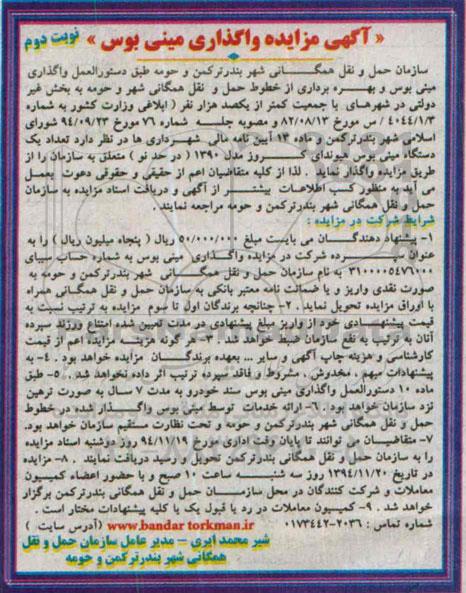 « آگهی مزایده واگذاری مینی بوس » نوبت دوم
سازمان حمل و نقل همگــانی شهر بندرترکمن و حومه طبق دستورالعمل واگذاری
مینی بوس و بهــره برداری از خطوط حمل و نقل همگانی شهر و حومه به بخش غیر
دولتی در شهرهای با جمعیت کمتر از یکصد هزار نفر ( ابلاغی وزارت کشور به شماره
۴۰۴۴/۱/۳ / س مورخ ۸۲/۰۸/۱۳ و مصوبه جلسه شماره ۷۶ مورخ ۹۴/۰۹/۲۳ شورای
اسلامی شهر بندرترکمن و ماده ۱۳ آیین نامه مالی شهرداری ها در نظر دارد تعداد یک
دستگاه مینی بوس هیوندای کــروز مدل ۱۳۹۰ ( در حد نو ) متعلق به سازمان را از
طریق مزایده واگذار نماید . لذا از کلیه متقاضیان اعم از حقیقی و حقوقی دعوت بعمل
می آید به منظور کسب اطلاعات بیشتــر از آگهی و دریافت اسناد مزایده به سازمان
حمل و نقل همگانی شهر بندرترکمن و حومه مراجعه نمایند .
شرایط شرکت در مزایده :
۱- پیشنهاد دهندگــان می بایست مبلغ ۵۰/۰۰۰/۰۰۰ ریال ( پنجاه میلیون ریال ) را به
عنوان سپــرده شرکت در مزایده واگــذاری مینی بوس به شماره حساب سیبای
۳۱۰۰۰۰۵۴۷۶۰۰۰ به نام سازمان حمل و نقل همگــانی شهر بندرترکمن و حومه به
صورت نقدی واریز و یا ضمانت نامه معتبر بانکی به سازمان حمل و نقل همگانی همراه
با اوراق مزایده تحویل نماید . ۲- چنانچه برندگان اول تا سوم مزایده به ترتیب نسبت به
قیمت پیشنهــادی خود از واریز مبلغ پیشنهادی در مدت تعیین شده امتناع ورزند سپرده
آنان به ترتیب به نفع سازمان ضبط خواهد شد . ۳- هر گونه هزینه مزایده اعم از قیمت
کارشناسی و هزینه چاپ آگهی و سایر ... بعهده برندگــان مزایده خواهد بود . ۴- به
پیشنهادات مبهم ، مخدوش ، مشروط و فاقد سپرده ترتیب اثر داده نخواهد شد . ۵- طبق
ماده ۱۰ دستورالعمل واگذاری مینی بوس سند خودرو به مدت ۷ سال به صورت ترهین
نزد سازمان خواهد بود . ۶- ارائه خدمات توسط مینی بوس واگــذار شده در خطوط
حمل و نقل همگانی شهر بندرترکمن و حومه و تحت نظارت مستقیم سازمان خواهد بود.
۷- متقاضیــان می توانند تا پایان وقت اداری مورخ ۹۴/۱۱/۱۹ روز دوشنبه اسناد مزایده
را به سازمان حمل و نقل همگانی بندرترکمن تحویل و رسید دریافت نمایند . ۸- مزایده
در تاریخ ۱۳۹۴/۱۱/۲۰ روز سه شنبــه ساعت ۱۰ صبح و با حضور اعضاء کمیسیون
معاملات و شرکت کنندگان در محل سازمــان حمل و نقل همگانی بندرترکمن برگزار
خواهد شد . ۹- کمیسیون معاملات در رد یا قبول یک یا کلیه پیشنهادات مختار است .
شماره تماس : ۰۱۷۳۴۴۲۰۲۰۳۶ www.bandar torkman.ir (آدرس سایت )
شیر محمد ایری – مدیر عامل سازمان حمل و نقل
همگانی شهر بندرترکمن و حومه